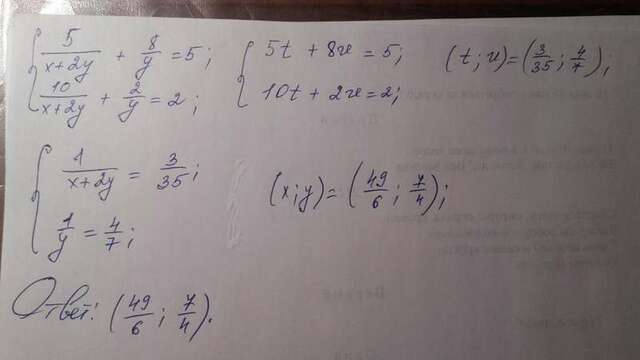 { 5/(x+2y) + 8/y = 5; 10/(x+2y) + 2/y = 2;
{ 5t + 8u = 5; 10t + 2u = 2;
(t; u) = (3/35; 4/7);
{ 1/(x+2y) = 3/35; 1/y = 4/7;
(x; y) = (49/6; 7/4);
Ответ: (49/6; 7/4).